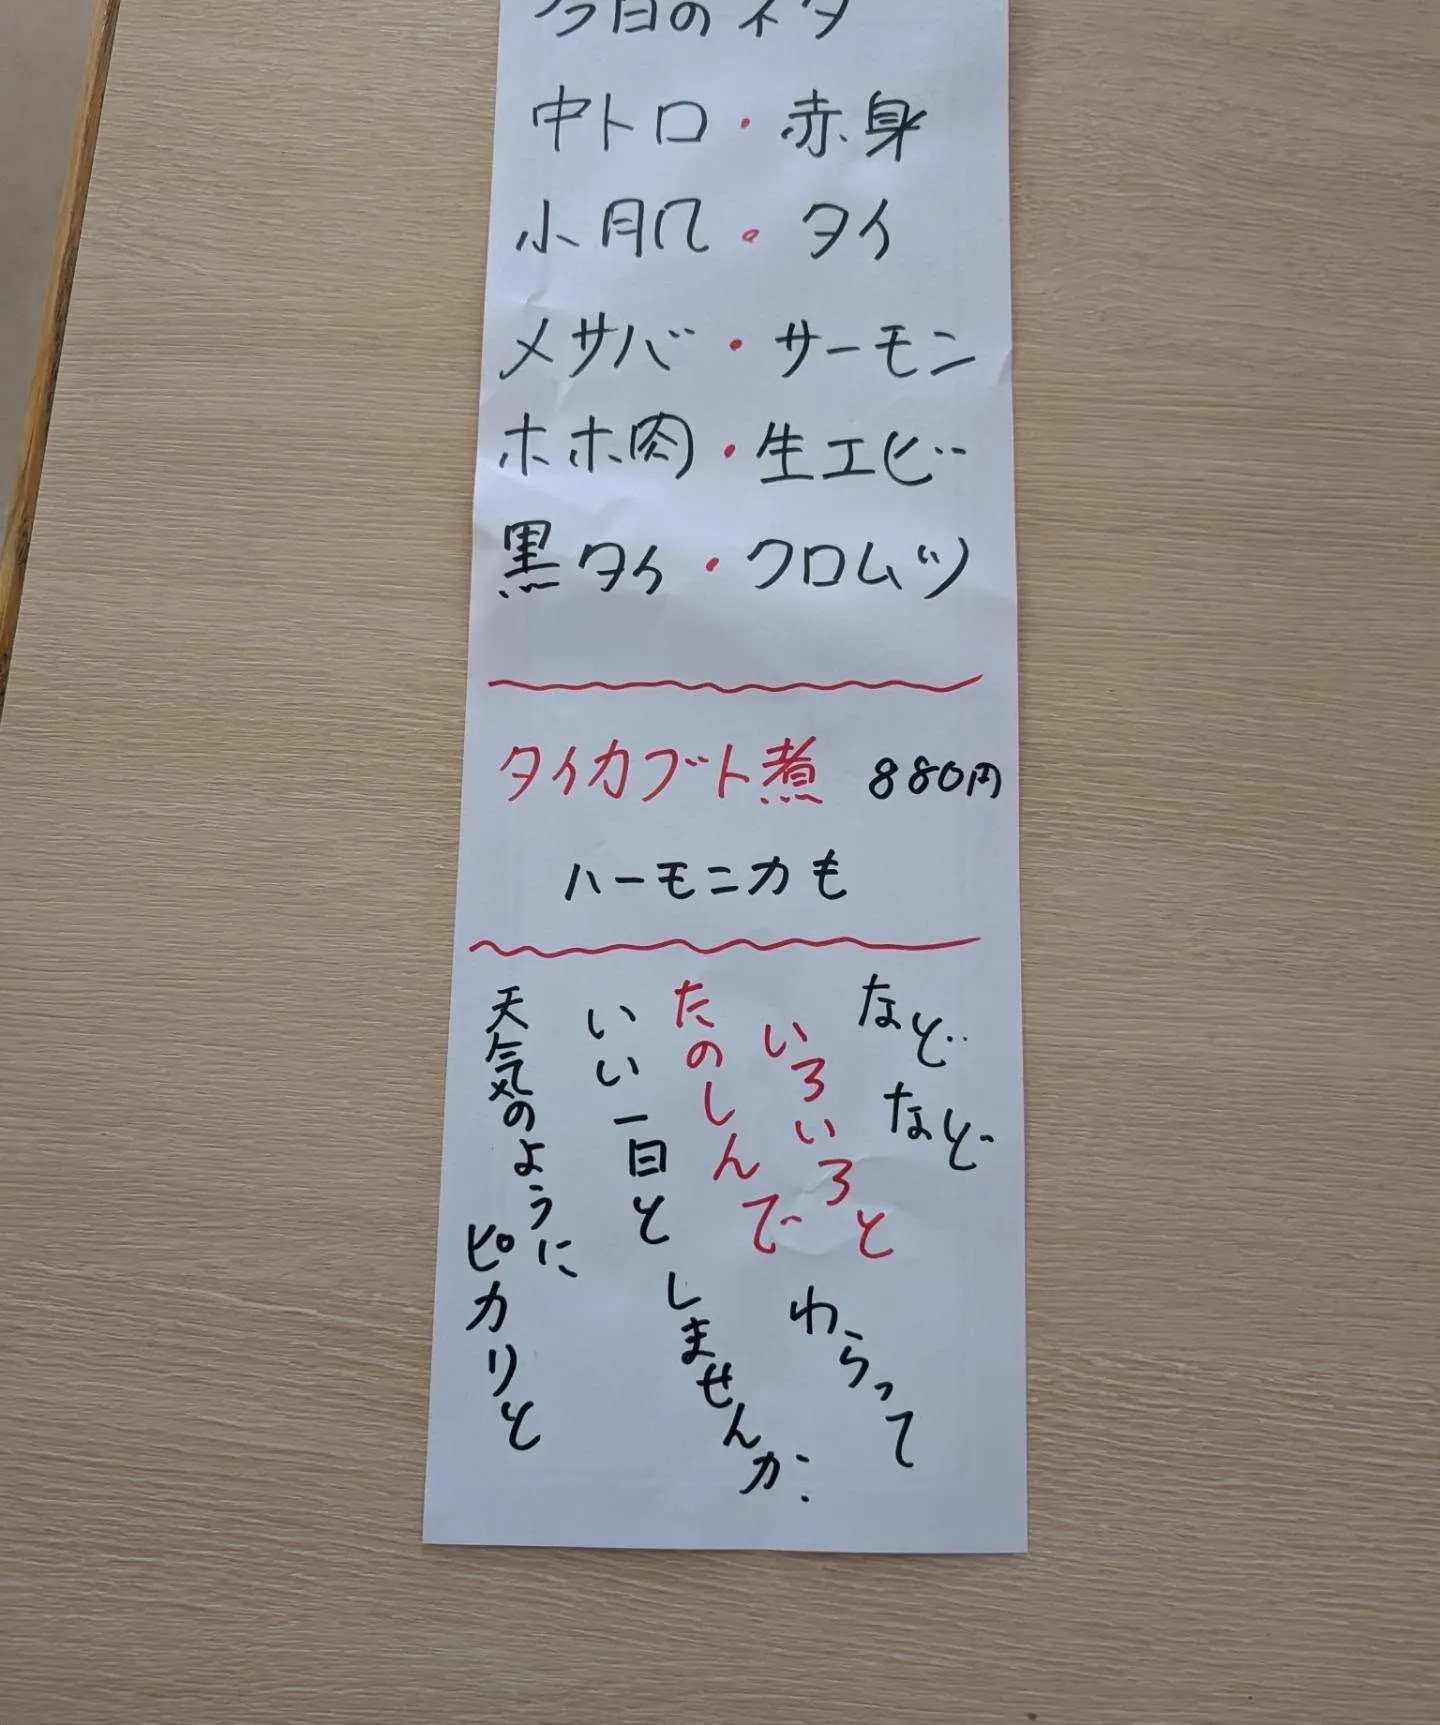 今日のネタ
中トロ・赤身
小肌・タイ
〆サバ・サーモン
ホホ肉・生エビ
黒タイ・クロムツ
タイカブト煮 880円
ハーモニカも
などなど
いろいろと
わらって
たのしんで
いい一日と
しませんか:
天気のように
ピカリと